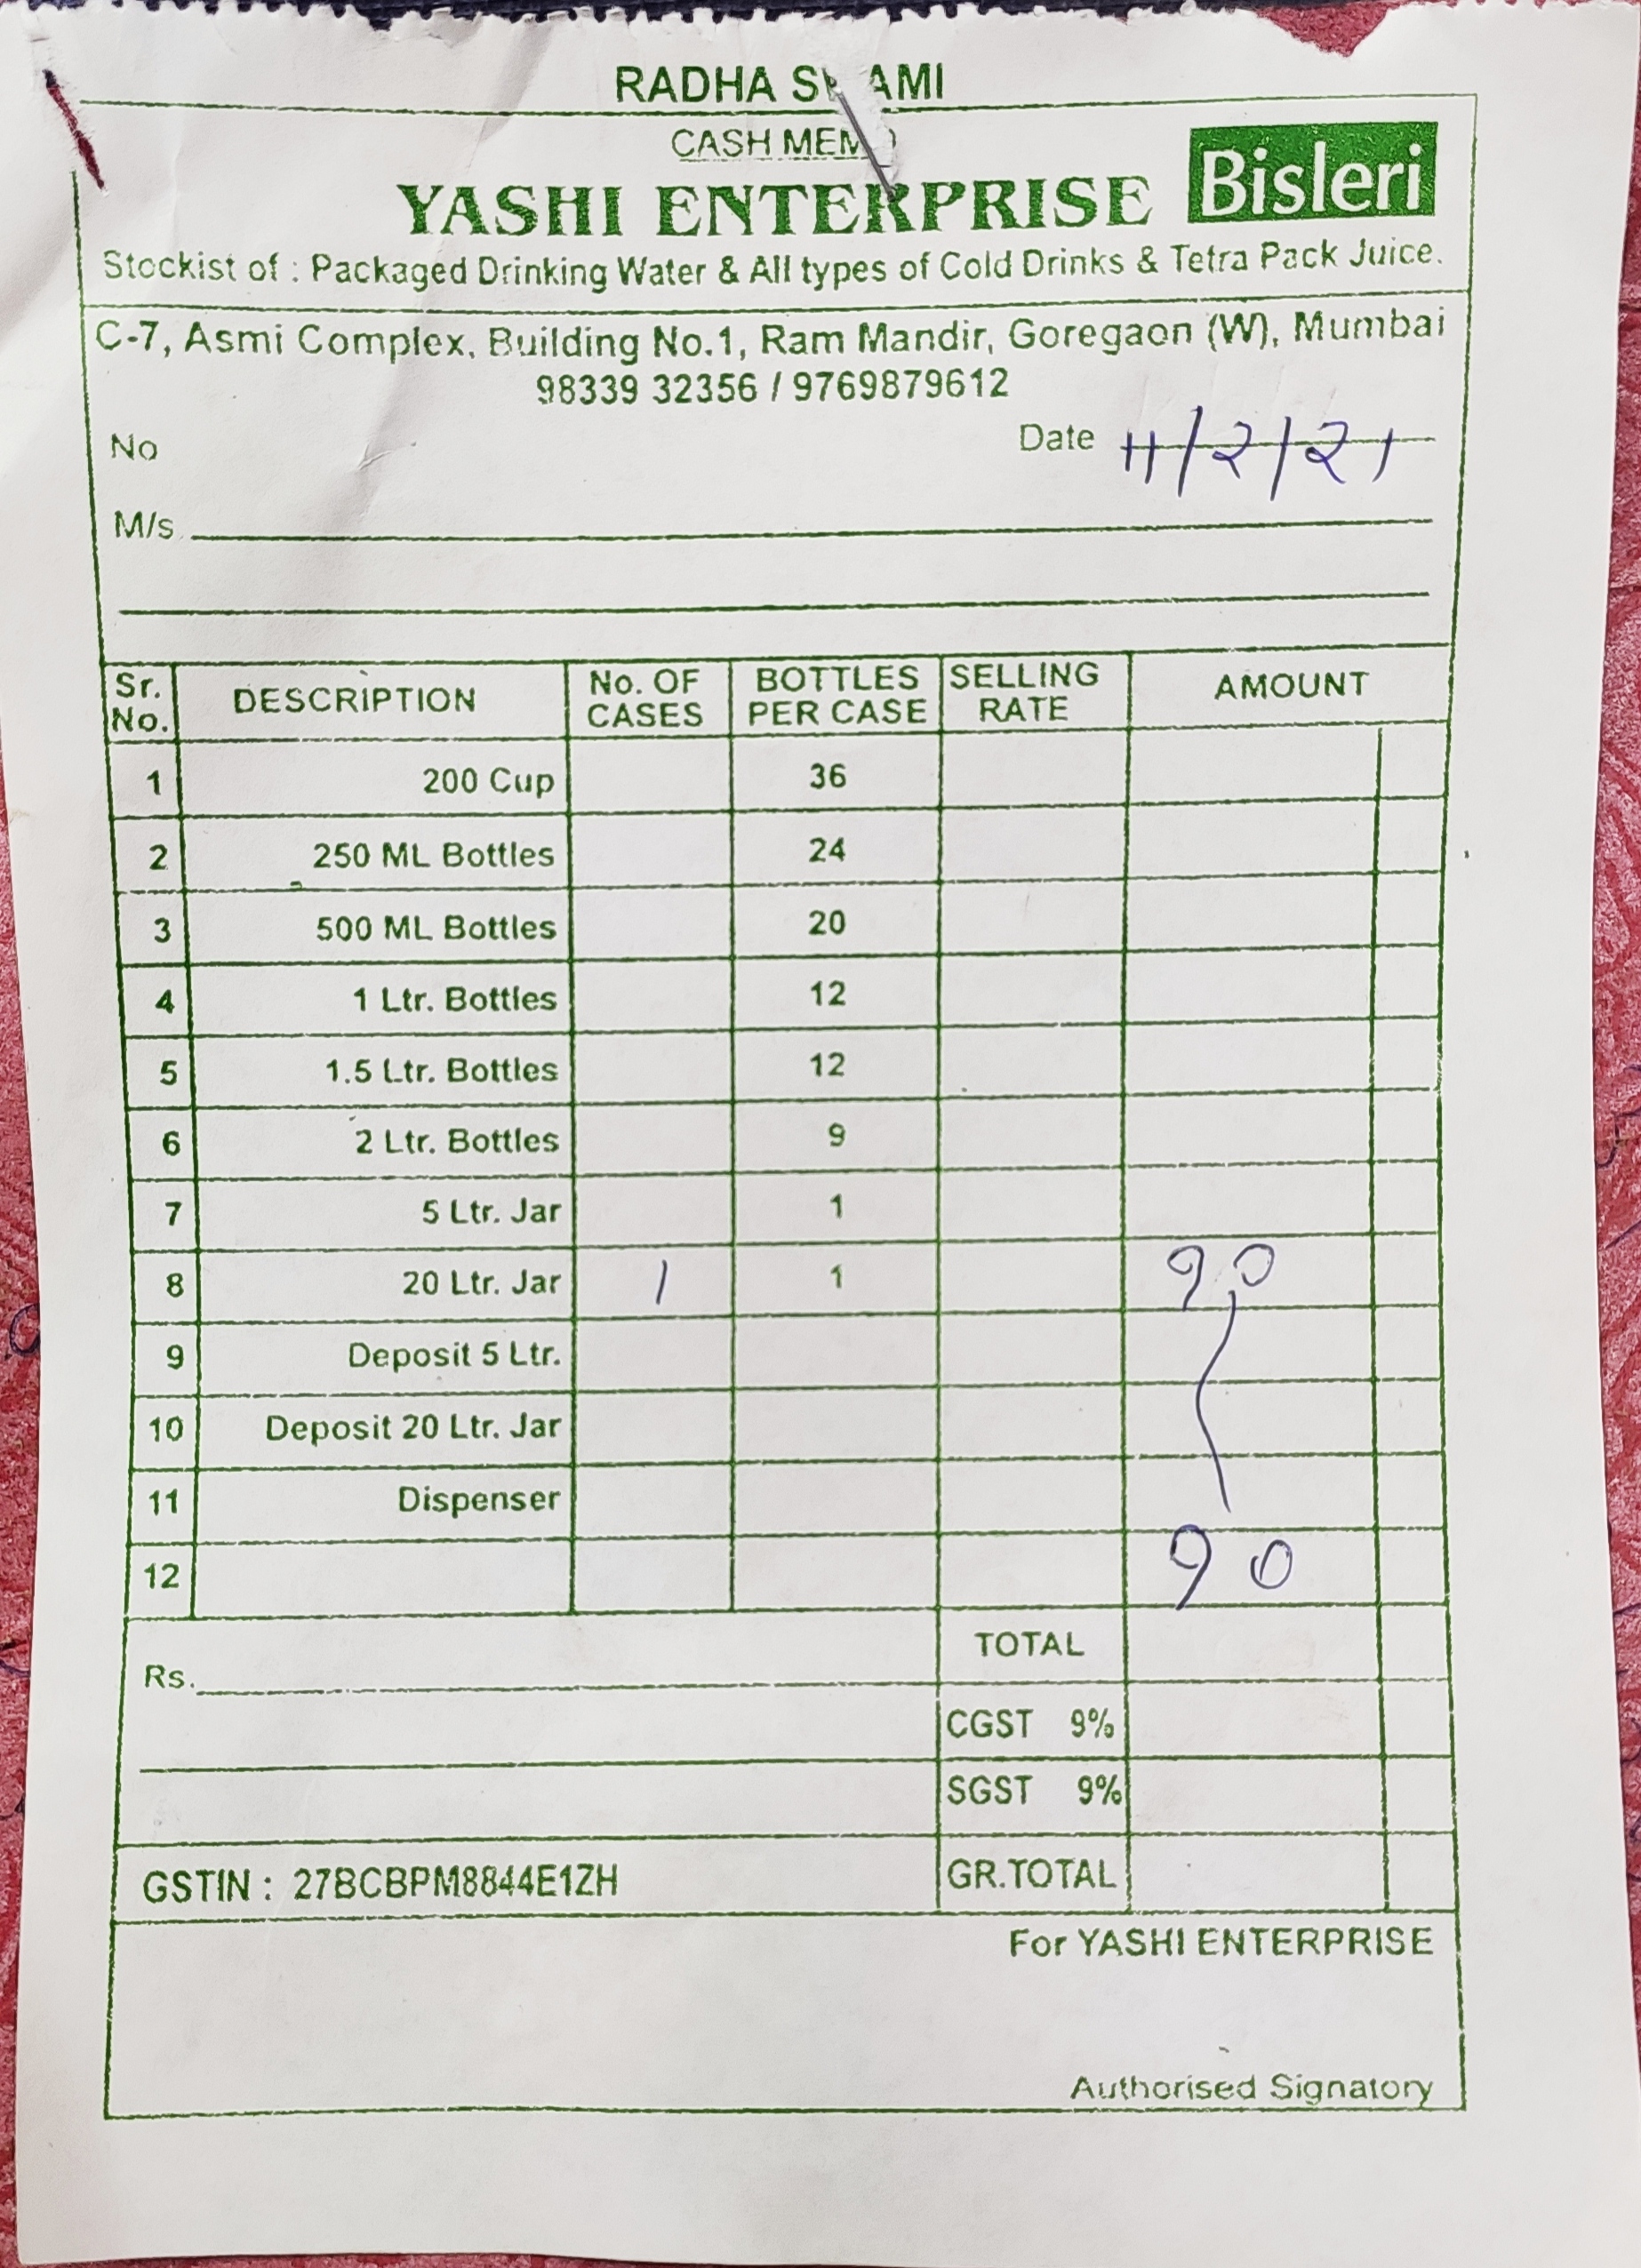 RADHA S AMI
CASH MEM
YASHI ENTERPRISE
Bisleri
Stockist of : Packaged Drinking Water & All types of Cold Drinks & Tetra Pack Juice.
C-7, Asmi Complex, Building No.1, Ram Mandir, Goregaon (W), Mumbai
98339 32356 / 9769879612
No Date 11/2/21
M/s.
Sr. No. DESCRIPTION No. OF CASES BOTTLES PER CASE SELLING RATE AMOUNT
1 200 Cup 36
2 250 ML Bottles 24
3 500 ML Bottles 20
4 1 Ltr. Bottles 12
5 1.5 Ltr. Bottles 12
6 2 Ltr. Bottles 9
7 5 Ltr. Jar 1
8 20 Ltr. Jar 1 1 90
9 Deposit 5 Ltr.
10 Deposit 20 Ltr. Jar
11 Dispenser
12 90
TOTAL
Rs.
CGST 9%
SGST 9%
GSTIN : 27BCBPM8844E1ZH GR.TOTAL
For YASHI ENTERPRISE
Authorised Signatory